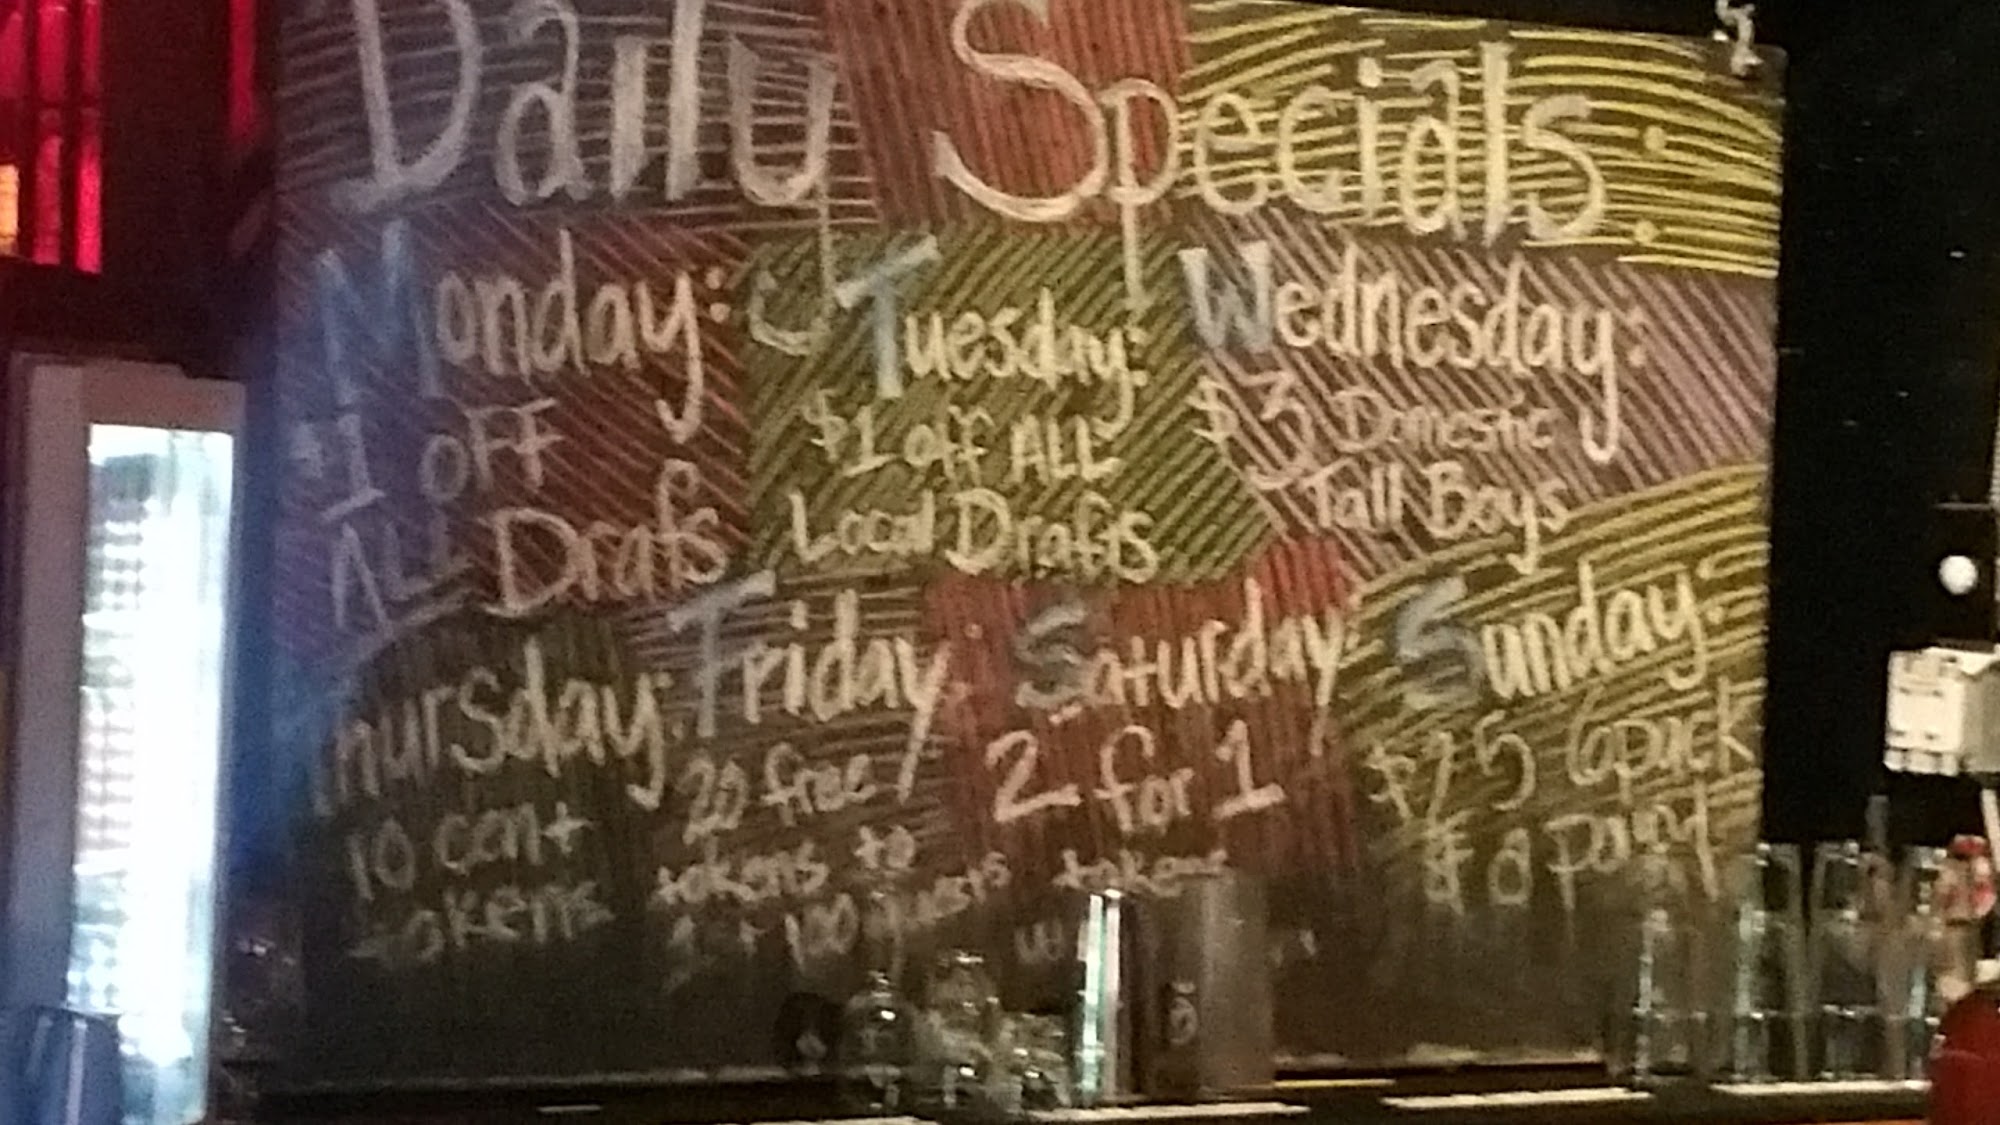 Daily Specials:
Monday:
$1 OFF
ALL Drafs
Tuesday:
$1 off ALL
Local Drafts
Wednesday:
$3 Domestic
Tall Boys
Thursday:
10 cent
tokens
Friday:
20 free
tokens to
1st 100 guests
Saturday:
2 for 1
tokens
Sunday:
$25 6pack
& a